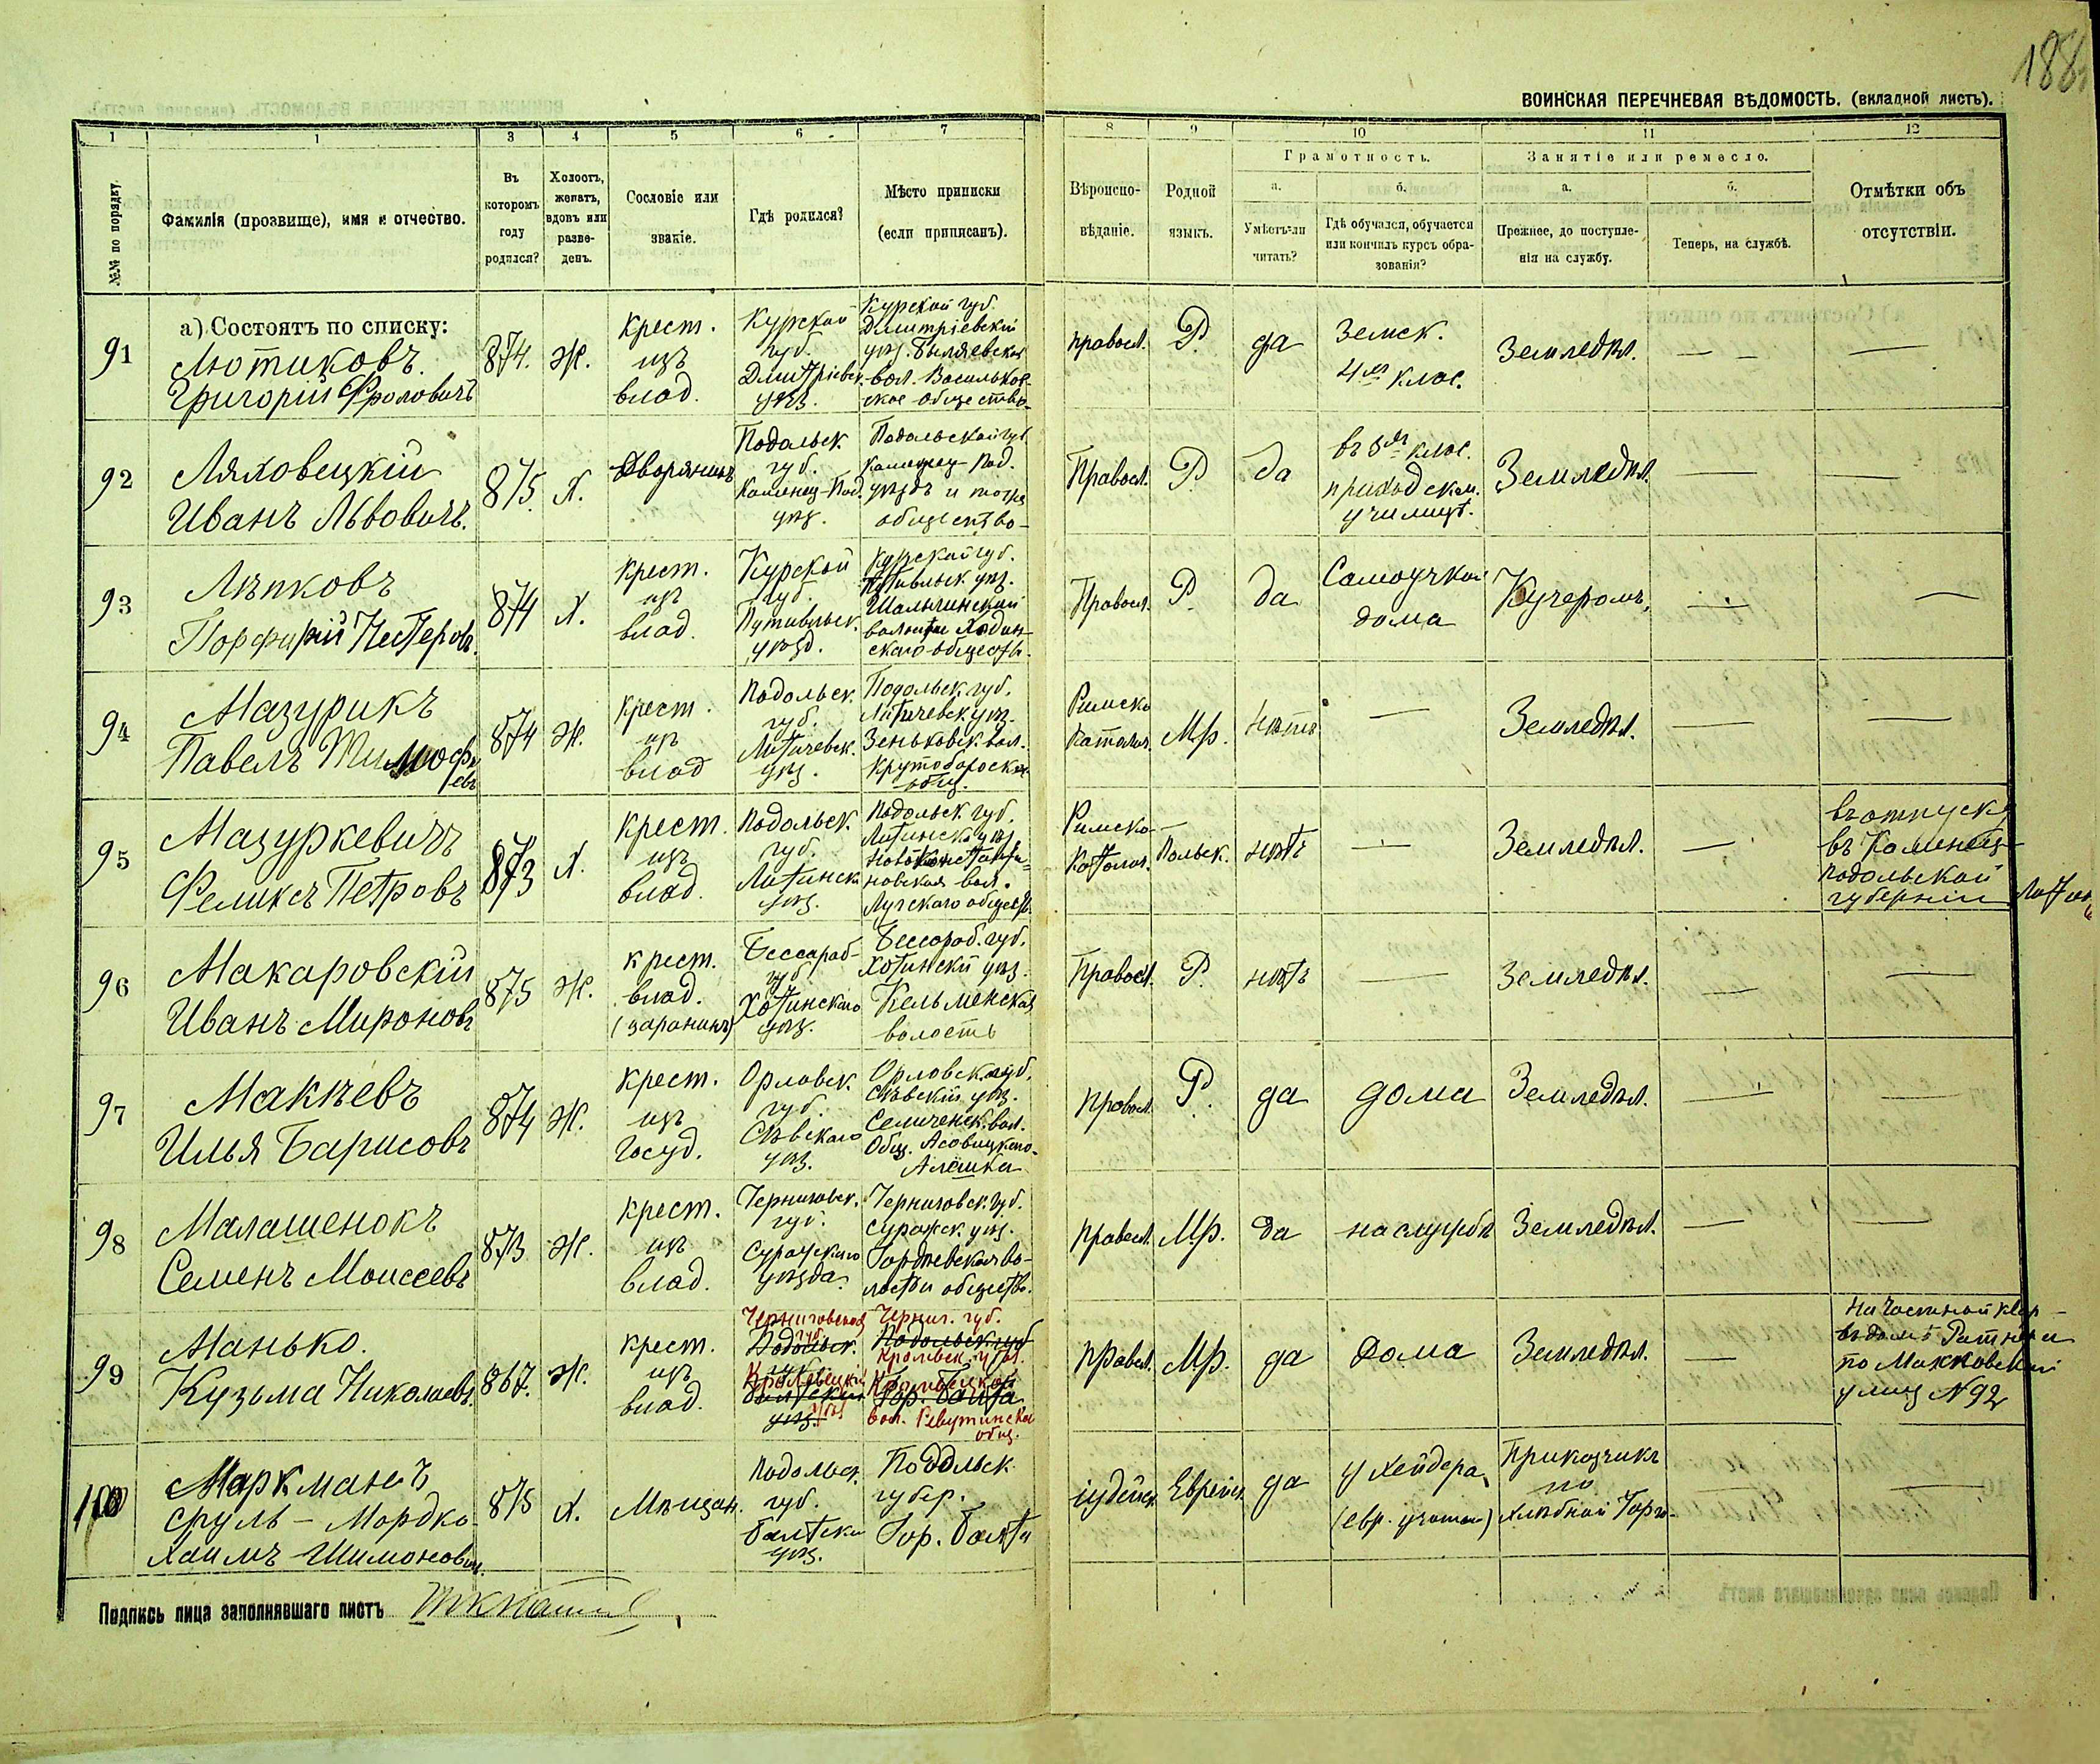 188
ВОИНСКАЯ ПЕРЕЧНЕВАЯ ВѢДОМОСТЬ. (вкладной листъ).
1
1
3
4
5
6
7
8
9
10
11
12
№№ по порядку.
Фамилія (прозвище), имя и отчество.
Въ
которомъ
году
родился?
Холостъ,
женатъ,
вдовъ или
разве-
денъ.
Сословіе или
званіе.
Гдѣ родился?
Мѣсто приписки
(если приписанъ).
Вѣроиспо-
вѣданіе.
Родной
языкъ.
Грамотность.
а.
Умѣетъ-ли
читать?
б.
Гдѣ обучался, обучается
или кончилъ курсъ обра-
зованія?
Занятіе или ремесло.
а.
Прежнее, до поступле-
нія на службу.
б.
Теперь, на службѣ.
Отмѣтки объ
отсутствіи.
а) Состоятъ по списку:
91
Лютиковъ.
Григорій Фроловичъ
874.
Ж.
крест.
изъ
влад.
Курской
губ.
Дмитріевск.
уѣз.
Курской губ.
Дмитріевскій
уѣз.
вол. Васильков-
ское общество
правосл.
Р.
да
Земск.
4 хъ клас.
Земледѣл.
— —
—
92
Ляховецкій
Иванъ Львовичъ.
875.
Х.
Дворянинъ
Подольск.
губ.
Каменец-Под.
уѣз.
Подольской губ.
Каменец-Под.
уѣздъ и тогоже
общество
Правосл.
Р.
да
клас.
приходском.
училищѣ.
Земледѣл.
—
—
93
Лѣпковъ
Порфирій Нестеровъ.
874
Х.
крест.
изъ
влад.
Курской
губ.
Путивльск.
уѣзд.
Курской губ.
Путивльск. уѣз.
Шалыгинской
волости
скаго обществ.
Правосл.
Р.
да
Самоучкой
дома
Кучеромъ,
—
—
94
Мазурикъ
Павелъ Тимофе
евъ
874
Ж.
крест.
изъ
влад
Подольск.
губ.
Литичевск.
уѣз.
Подольск. губ.
Литичевск. уѣз.
Зеньковск. вол.
общ.
Римско
Католич.
Мр.
нѣтъ
—
Земледѣл.
—
—
95
Мазуркевичъ
Феликсъ Петровъ
873
Х.
крест.
изъ
влад.
Подольск.
губ.
Литинск.
уѣз.
Подольск. губ.
Литинск. уѣз.
Новоконстанти-
новская вол.
Римско-
Католич.
Польск.
нѣтъ
—
Земледѣл.
—
въ отпуску
въ Каменец-
подольской
губерніи
96
Макаровскій
Иванъ Мироновъ
875
Ж.
крест.
влад.
(царанинъ)
Бессараб-
губ.
Хотинскаго
уѣз.
Бессараб. губ.
Хотинскій уѣз.
Кельменская
волость
Правосл.
Р.
нѣтъ
—
Земледѣл.
—
—
97
Макѣевъ
Илья Барисовъ
874
Ж.
крест.
изъ
Госуд.
Орловск.
губ.
Сѣвскаго
уѣз.
Орловск. губ.
Сѣвскій уѣз.
вол.
Общ.
Алешка
правосл.
Р.
да
дома
Земледѣл.
—
—
98
Малашенокъ
Семенъ Моисеевъ
873
Ж.
крест.
изъ
влад.
Черниговск.
губ.
Суражскаго
уѣзда.
Черниговск. губ.
Суражск. уѣз.
Гордѣевская во-
лости общество.
правосл.
Мр.
да
на службѣ
Земледѣл.
—
—
99
Манько.
Кузьма Николаевъ.
867.
Ж.
крест.
изъ
влад.
Черниговской
губ.
Подольск.
губ.
Кролевецкій
Балтскій
уѣз.
Черниг. губ.
Подольск. губ
Кролевецкой
Гор. Балта
вол.
общ.
правосл.
Мр.
да
дома
Земледѣл.
—
На частной квар-
въ домѣ
по
улиц. № 92
100
Маркманъ
Сруль - Мордко-
Хаимъ Шимонович.
875
Х.
Мѣщан.
Подольск.
губ.
Балтскій
уѣз.
Подольск
губер.
Гор. Балта
іудейск.
Еврейск.
да
у Хейдера,
Прикащикъ
по
хлѣбной Торго-
—
—
Подпись лица заполнявшаго листъ